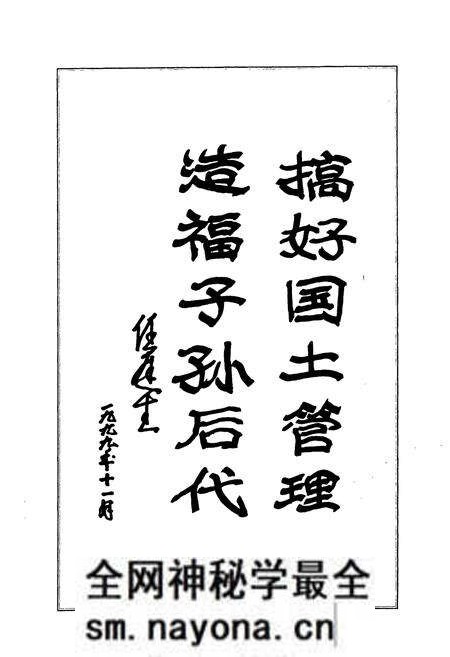 搞好国土管理
造福子孙后代
一九九九年十一月
全网神秘学最全
sm.nayona.cn